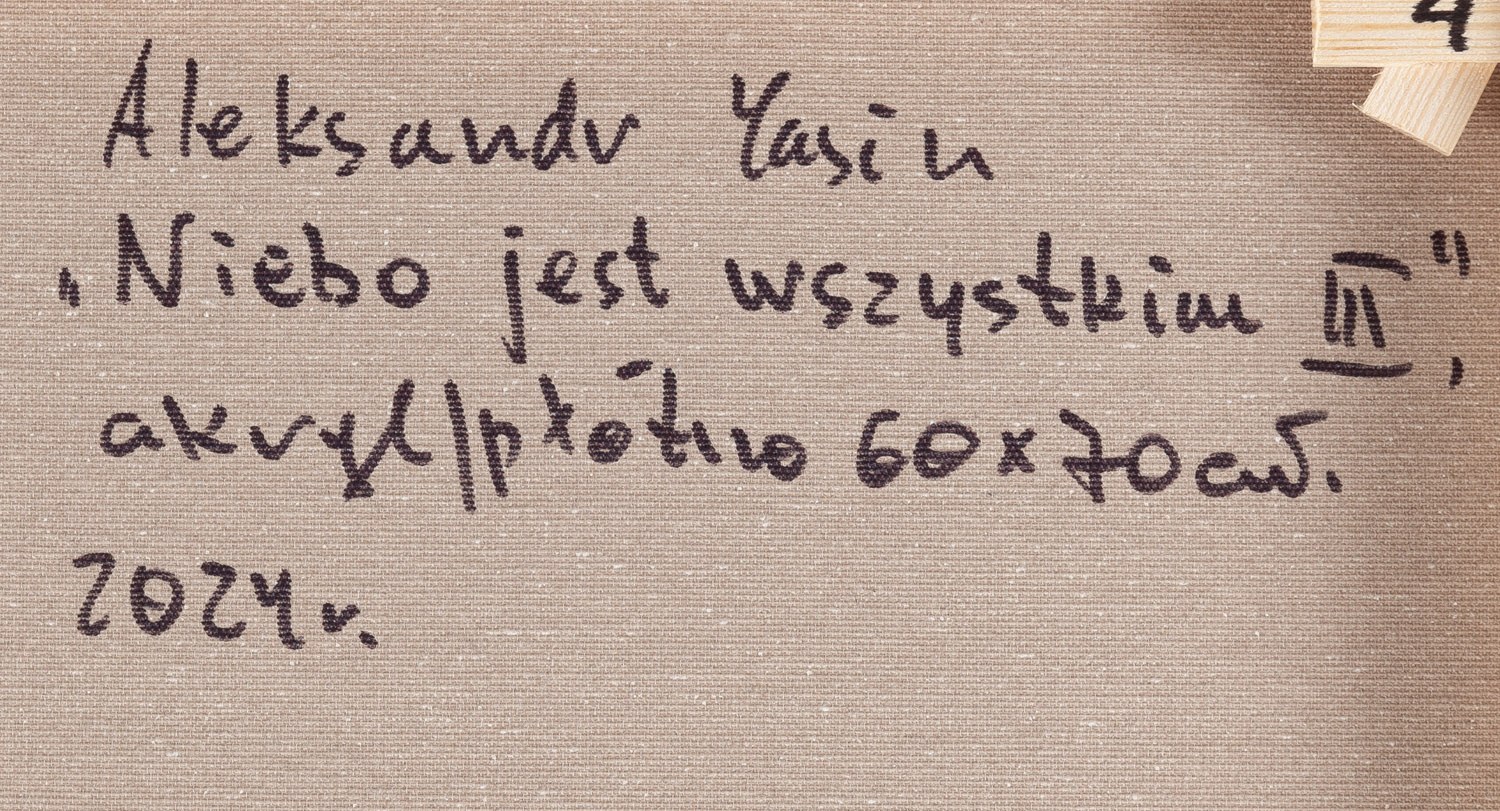 4
Aleksandr Yasin
„Niebo jest wszystkim III”,
akryl/płótno 60x70cm.
2024r.